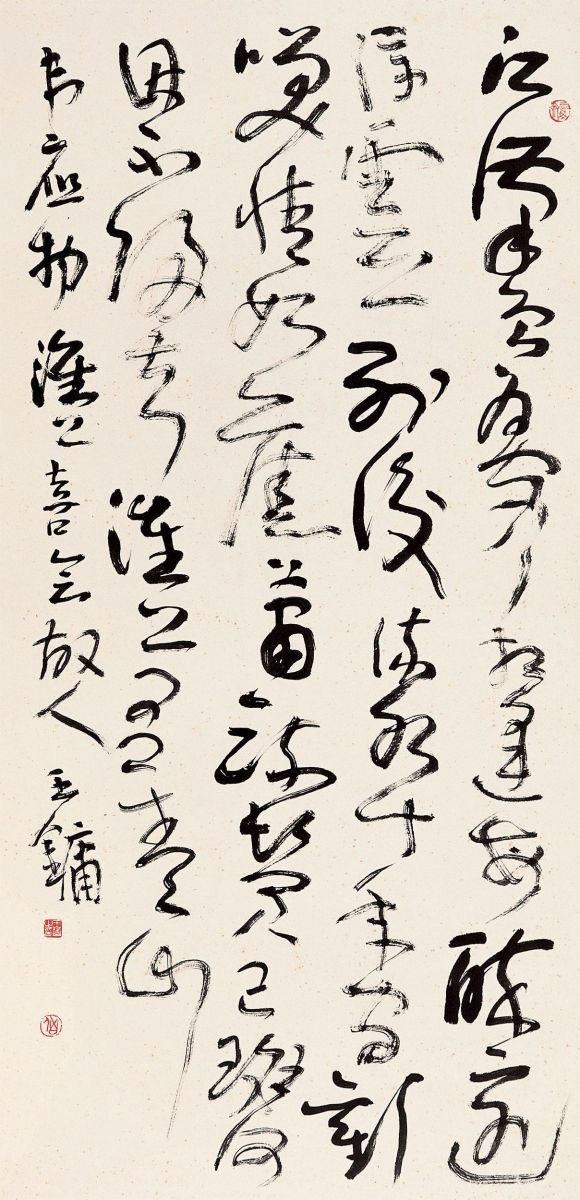 江漢曾為客相逢每醉還
浮雲一別後流水十年間歡
笑情如舊蕭疏鬢已斑何
因不歸去淮上有山
韋應物淮上喜會故人 王鏞